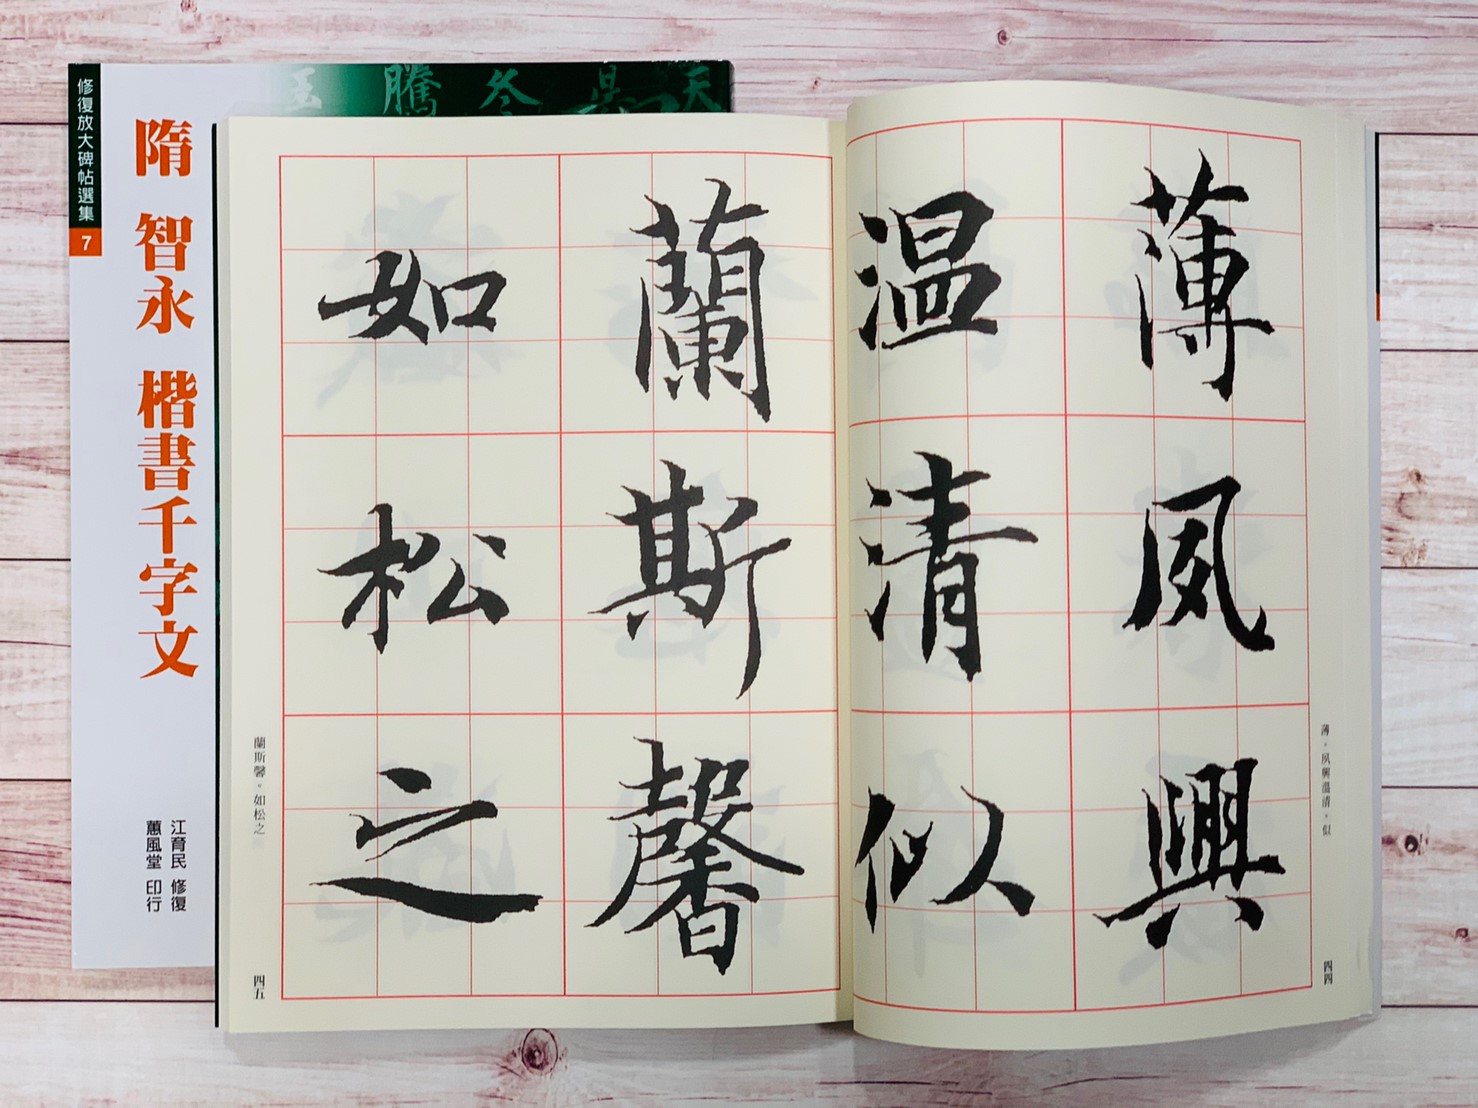 修復放大碑帖選集
7
隋 智永 楷書千字文
江育民 修復
蕙風堂 印行
騰
冬
天
薄夙興
溫清似
蘭斯馨
如松之
薄。夙興溫清。似
四四
蘭斯馨。如松之
四五